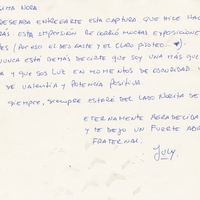 SIMA NORA:
DESEABA ENTREGARTE ESTA CAPTURA QUE HICE HACE
ÁS ESTA IMPRESIÓN RECORRIÓ MUCHAS EXPOSICIONE
ES (POR ESO EL DESGASTE Y EL CLARO PIOTEO...).
NUNCA ESTÁ DEMÁS DECIRTE QUE SOY UNA MÁS QUE
A Y QUE SOS LUZ EN MOMENTOS DE OSCURIDAD.
DE VALENTÍA Y POTENCIA POSITIVA.
SIEMPRE, SIEMPRE ESTARÉ DEL LADO NORITA DE
ETERNAMENTE AGRADECIDA
Y TE DEJO UN FUERTE ABR
FRATERNAL.